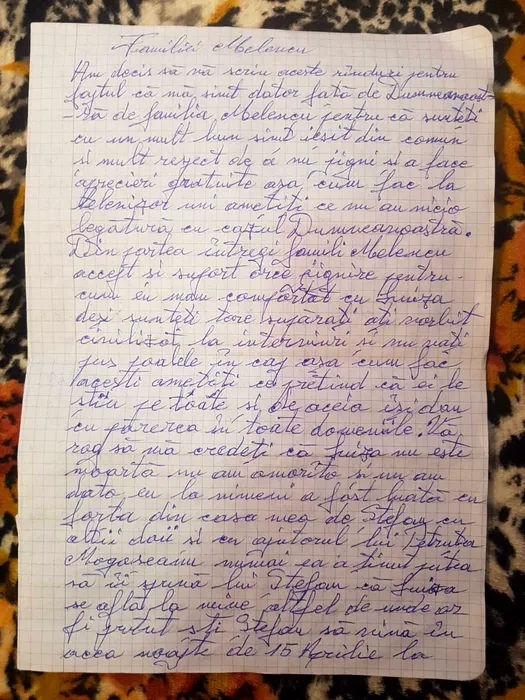 Familiei Melencu
Am decis să mă scriu aceste rînduzi pentru
faptul că mă simt dator față de Dumneavoast-
-ră de familia Melencu pentru că sunteți
cu un mult bun simt iesit din comun
si mult respect de a nu jigni si a face
aprecieri gratuite așa cum fac la
televizor uni ametiti ce nu au nicio
legătură cu cazul Dumneavoastră.
Din partea întregi famili Melencu
accept si suport orce jignire pentru-
cum eu mam comportat cu Luiza
desi sunteti tare supărați ati vorbit
civilizat la interviuri si nu vati
pus poalele în cap asa cum fac
acesti ametiti ce pretind că ei le
stiu pe toate si de aceia îsi dau
cu părerea în toate domeniile. Vă
rog să mă credeți că Luiza nu este
moartă nu am omorîto si nu am
dato eu la nimeni a fost luată cu
forta din casa mea de Stefan cu
altii doi si cu ajutorul lui Petruta
Mogoseanu numai ea a tinut
să îi spună lui Stefan că Luiza
se află la mine altfel de unde ar
fi putut sti Stefan să vină în
acea noapte de 15 Aprilie la